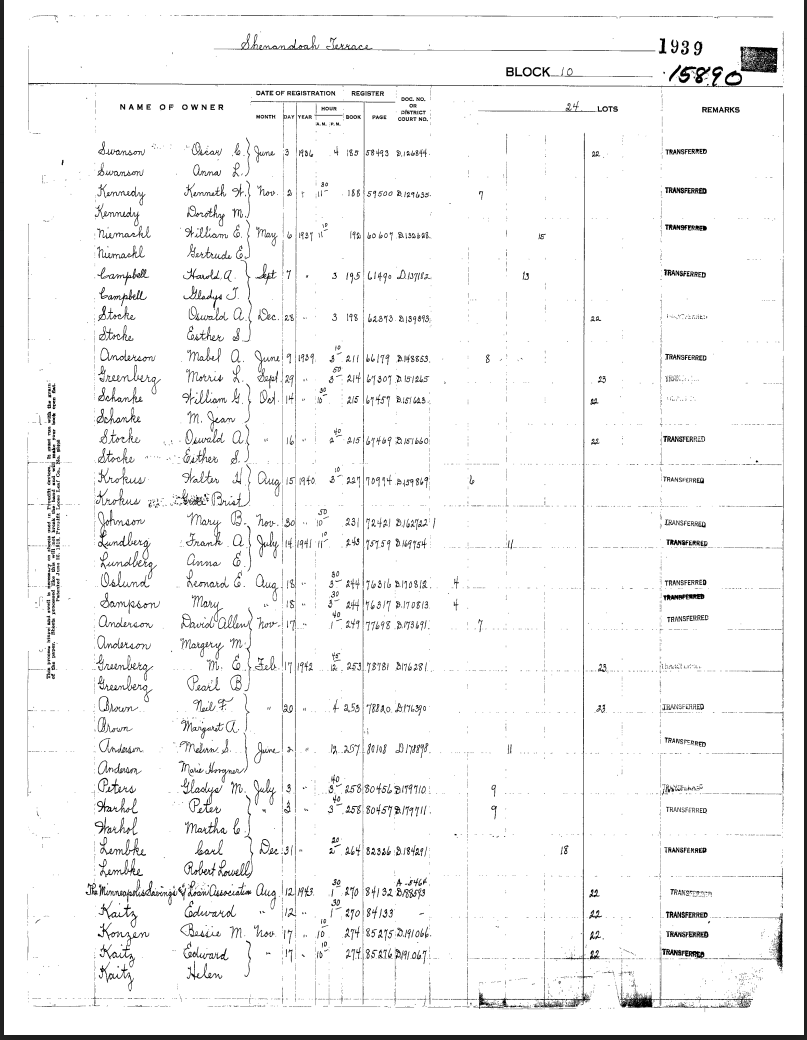 Shenandoah Terrace
1939
BLOCK 10
15890
NAME OF OWNER DATE OF REGISTRATION REGISTER DOC. NO. OR DISTRICT COURT NO. 24 LOTS REMARKS
MONTH DAY YEAR HOUR A.M. P.M. BOOK PAGE
Swanson Oscar C. June 3 1936 4 185 58493 D.126844 22 TRANSFERRED
Swanson Anna L.
Kennedy Kenneth W. Nov. 2 " 11 30 188 59500 D.129635 7 TRANSFERRED
Kennedy Dorothy M.
Niemackl William E. May 6 1937 11 10 192 60607 D.132628 15 TRANSFERRED
Niemackl Gertrude E.
Campbell Harold A. Sept 7 " 3 195 61490 D.137182 13 TRANSFERRED
Campbell Gladys T.
Stocke Oswald A. Dec. 28 " 3 198 62373 D.139393 22 TRANSFERRED
Stocke Esther S.
Anderson Mabel A. June 9 1939 3 10 211 66179 D.148853 8 TRANSFERRED
Greenberg Morris L. Sept. 29 " 3 50 214 67307 D.151265 23
Schanke William G. Oct. 14 " 10 30 215 67457 D.151623 22
Schanke M. Jean
Stocke Oswald A. " 16 " 2 40 215 67469 D.151660 22 TRANSFERRED
Stocke Esther S.
Krokus Walter H. Aug 15 1940 3 10 227 70974 D.159869 6 TRANSFERRED
Krokus Brist
Johnson Mary B. Nov. 30 " 10 50 231 72421 D.162722 1 TRANSFERRED
Lundberg Frank A. July 14 1941 11 10 243 75759 D.169754 11 TRANSFERRED
Lundberg Anna E.
Oslund Leonard E. Aug 18 " 3 30 244 76316 D.170812 4 TRANSFERRED
Sampson Mary " 18 " 3 30 244 76317 D.170813 4 TRANSFERRED
Anderson David Allen Nov. 17 " 1 40 249 77698 D.173691 7 TRANSFERRED
Anderson Margery M.
Greenberg M. E. Feb. 17 1942 12 45 253 78781 D176281 23 TRANSFERRED
Greenberg Pearl B
Brown Neil F. " 20 4 253 78820 D.176390 23 TRANSFERRED
Brown Margaret A.
Anderson Melvin S. June 2 " 12 257 80108 D.178898 11 TRANSFERRED
Anderson Marie Horgner
Peters Gladys M. July 3 " 3 40 258 80456 D.179710 9 TRANSFERRED
Warhol Peter " 3 " 3 40 258 80457 D.179711 9 TRANSFERRED
Warhol Martha C.
Lembke Carl Dec 31 " 2 20 264 82326 D.184291 18 TRANSFERRED
Lembke Robert Lowell
The Minneapolis Savings & Loan Association Aug 12 1943 1 30 270 84132 D188593 22 TRANSFERRED
Kaitz Edward " 12 " 1 30 270 84133 - 22 TRANSFERRED
Konzen Bessie M. Nov. 17 " 10 10 274 85275 D.191.066 22 TRANSFERRED
Kaitz Edward " 17 " 10 10 274 85276 D.191.067 22 TRANSFERRED
Kaitz Helen